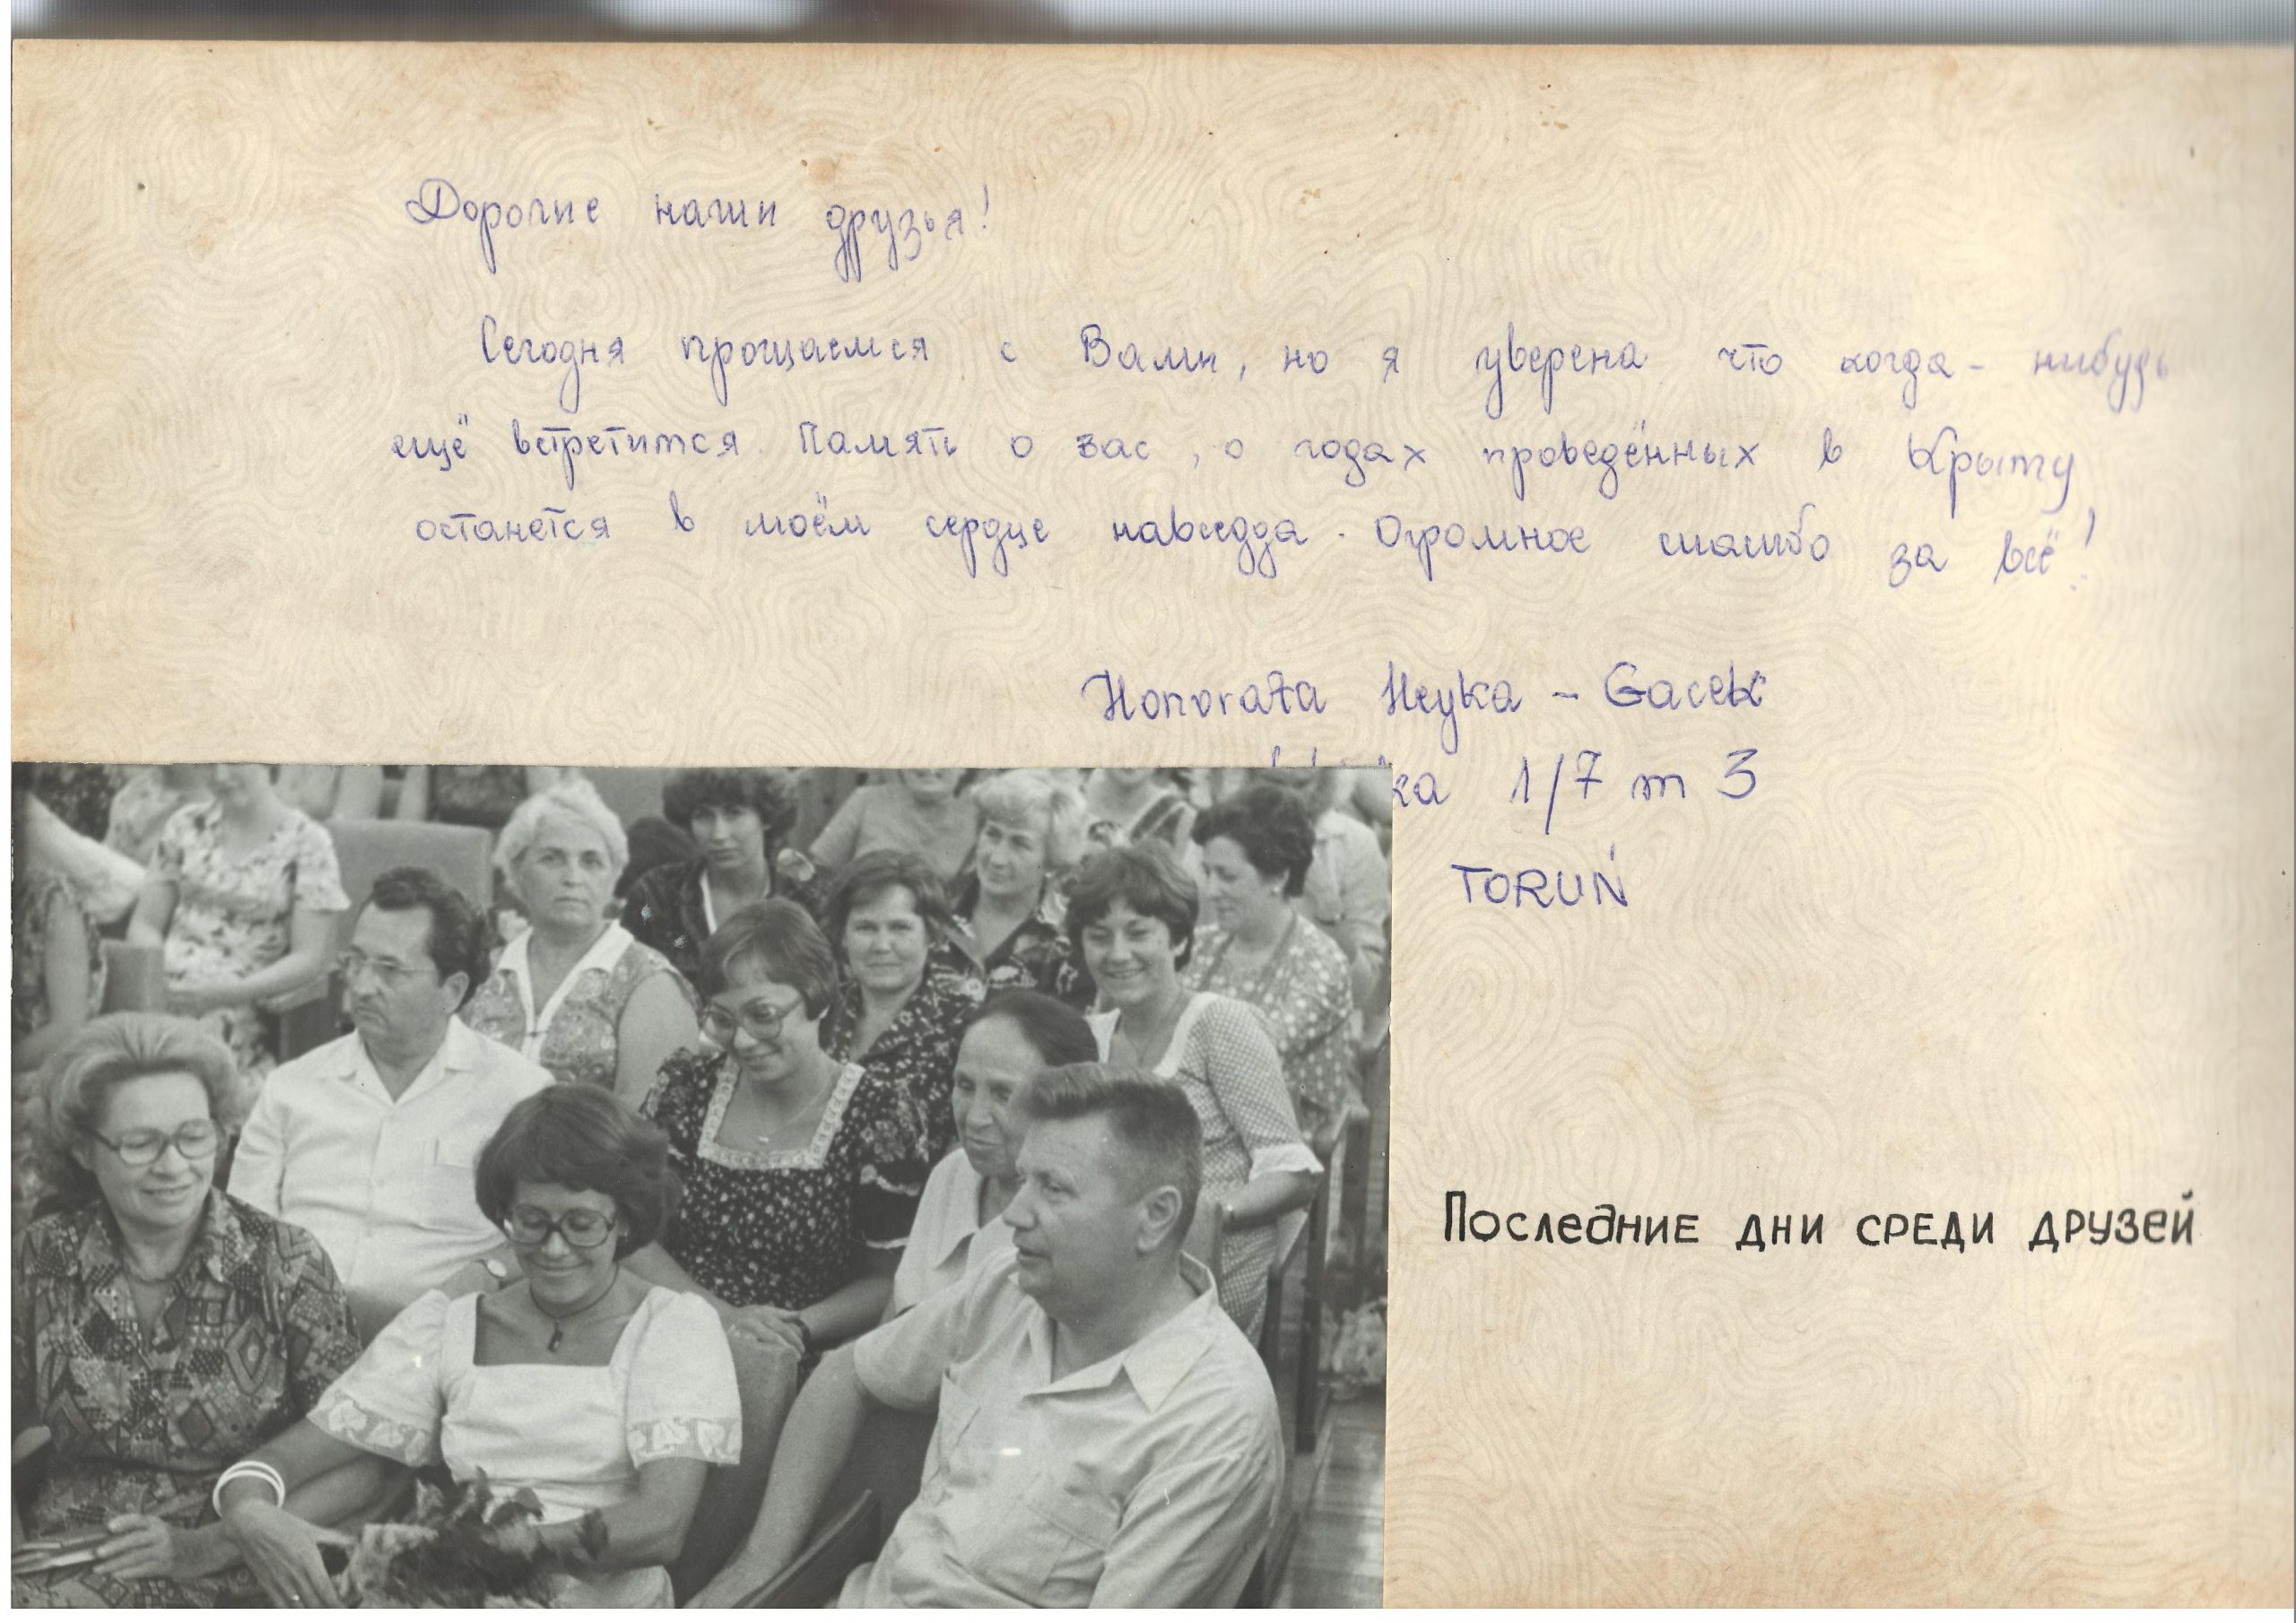 Дорогие наши друзья!
Сегодня прощаемся с Вами, но я уверена что когда- нибудь
ещё встретимся. Память о вас, о годах проведённых в Крыму
останется в моём сердце навсегда. Огромное спасибо за всё!
Honorata Heyka - Gacek
1/7 m 3
TORUŃ
Последние дни среди друзей